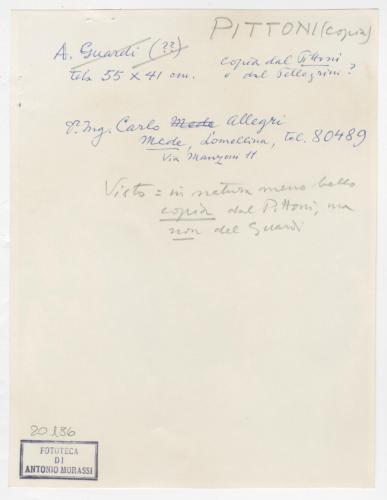 PITTONI (copia)
A. Guardi (??)
tela 55 x 41 cm.
copia dal Pittoni
o dal Pellegrini?
Ing. Carlo Mede Allegri
Mede, Lomellina, tel. 80489
Via Manzoni 11
Visto = in natura meno bello
copia dal Pittoni, ma
non del Guardi
20136
FOTOTECA
DI
ANTONIO MORASSI